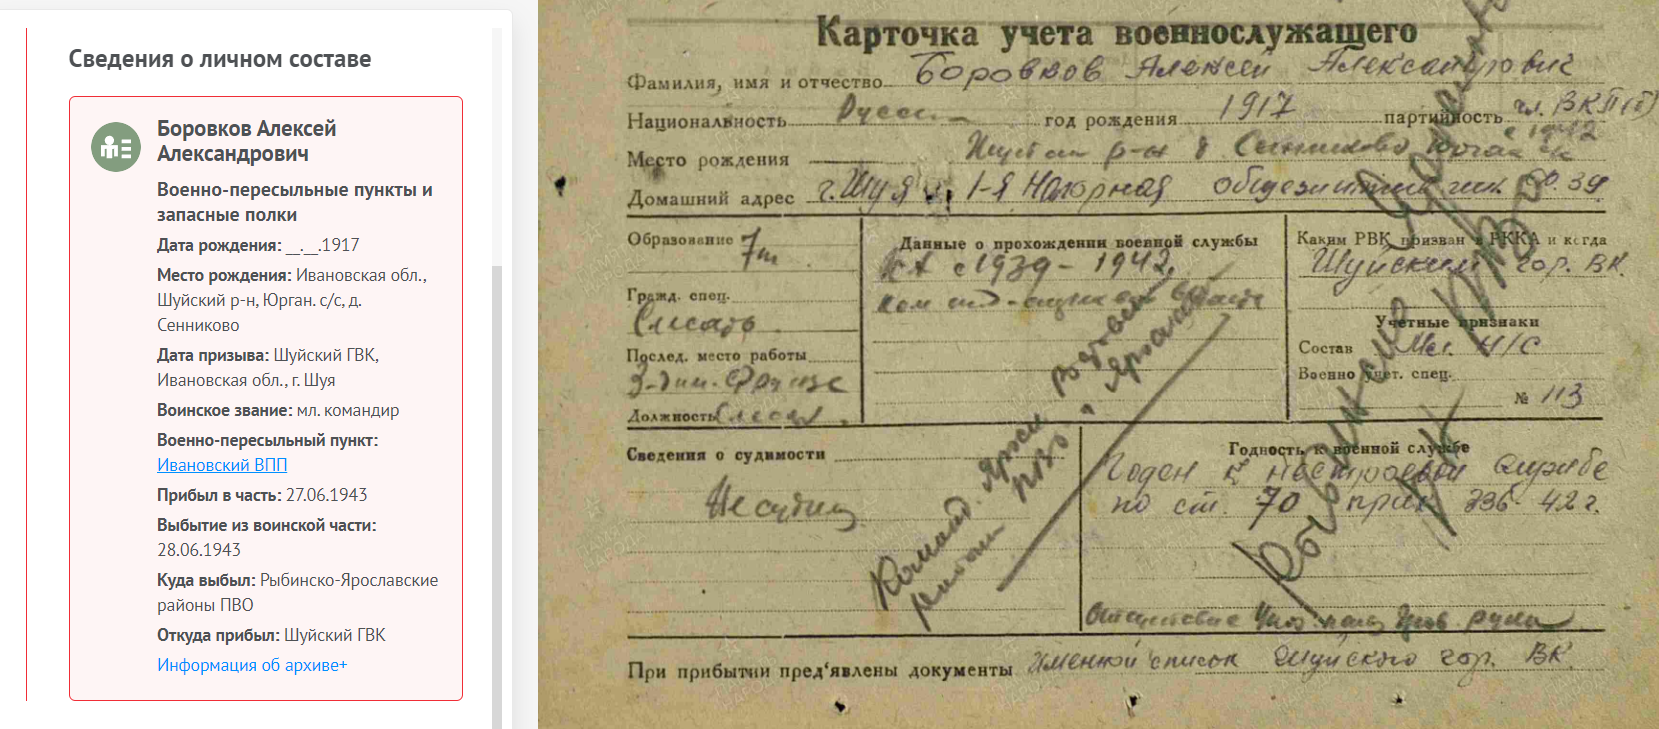 Сведения о личном составе
Боровков Алексей
Александрович
Военно-пересыльные пункты и
запасные полки
Дата рождения: __.__.1917
Место рождения: Ивановская обл.,
Шуйский р-н, Юрган. с/с, д.
Сенниково
Дата призыва: Шуйский ГВК,
Ивановская обл., г. Шуя
Воинское звание: мл. командир
Военно-пересыльный пункт:
Ивановский ВПП
Прибыл в часть: 27.06.1943
Выбытие из воинской части:
28.06.1943
Куда выбыл: Рыбинско-Ярославские
районы ПВО
Откуда прибыл: Шуйский ГВК
Информация об архиве+
Карточка учета военнослужащего
Фамилия, имя и отчество Боровков Алексей Александрович
Национальность Русск год рождения 1917 партийность чл. ВКП(б)
с 1942
Место рождения р-н д Сенниково
Домашний адрес г. Шуя 1-я Нагорная общежитие 39
Образование 7
Гражд. спец.
Слесарь
Послед. место работы
З-д им. Фрунзе
Должность Слесарь
Данные о прохождении военной службы
КА с 1939 - 1942
Каким РВК призван в РККА и когда
Шуйским гор. ВК.
Учетные признаки
Состав Мл. Н/С
Военно учет. спец.
№ 113
Сведения о судимости
Несудим
Годность к военной службе
Годен к нестроевой службе
по ст. 70 прик. 336-42г.
Команд. Яросл
ПВО
Рыбинские
ПВО
При прибытии пред'явлены документы Именной список Шуйского гор. ВК.